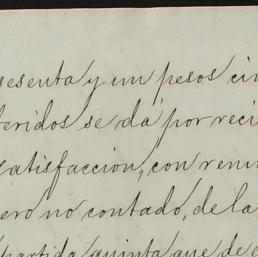 sesenta y un pesos cin
feridos se dá por reci
satisfaccion, con renun
ero no contado, de la
partida quinta que de e